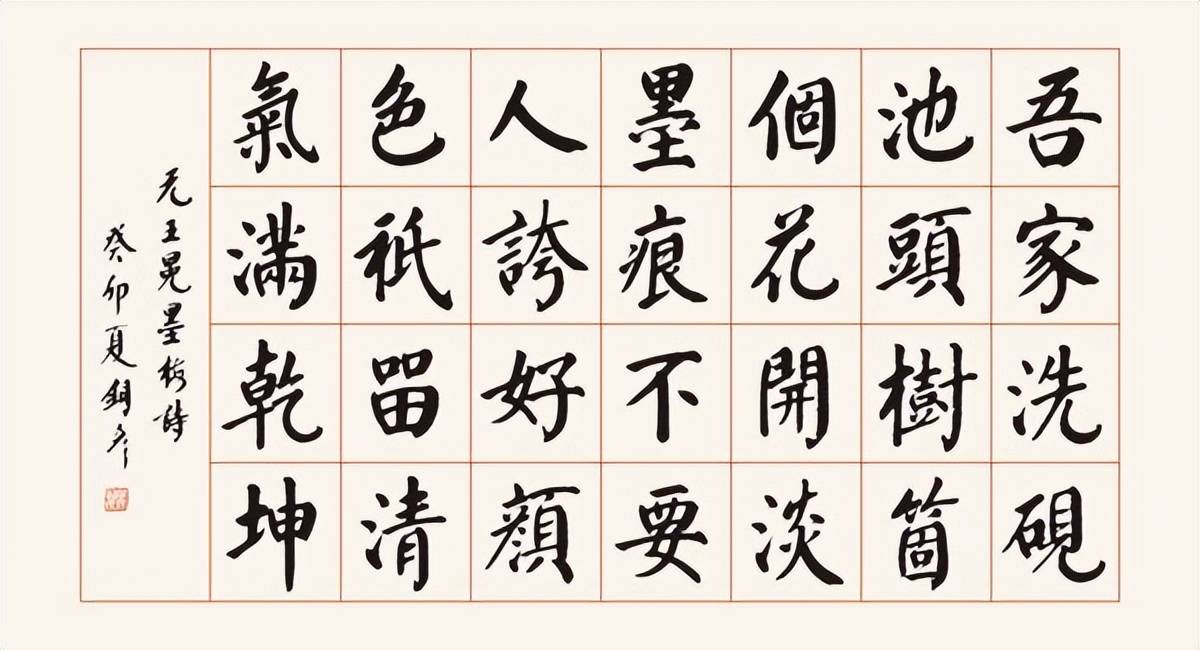 吾家洗硯
池頭樹箇
個花開淡
墨痕不要
人誇好顔
色衹留清
氣滿乾坤
元王冕墨梅詩
癸卯夏銅彥